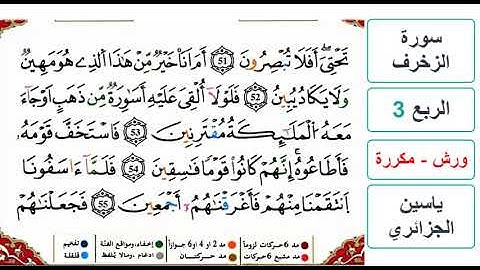 تَحْتِىَ أَفَلَا تُبْصِرُونَ 51 أَمَ اَنَا خَيْرٌ مِّنْ هَٰذَا اَ۬لذِے هُوَ مَهِينٌ
وَلَا يَكَادُ يُبِينُ 52 فَلَوْلَا أُلْقِىَ عَلَيْهِ أَسَٰوِرَةٌ مِّن ذَهَبٍ اَوْ جَآءَ
مَعَهُ اُ۬لْمَلَٰٓئِكَةُ مُقْتَرِنِينَ 53 فَاسْتَخَفَّ قَوْمَهُۥ
فَأَطَاعُوهُ إِنَّهُمْ كَانُواْ قَوْماً فَٰسِقِينَ 54 فَلَمَّآ ءَاسَفُونَا
اَ۪نتَقَمْنَا مِنْهُمْ فَأَغْرَقْنَٰهُمُۥٓ أَجْمَعِينَ 55 فَجَعَلْنَٰهُمْ
مد 6 حركات لزوماً مد 2 او 4 او 6 جوازاً إخفاء، ومواقع الغنة تفخيم
مد مشبع 6 حركات مد حركتان ادغام، ومالا يلفظ قلقلة
سورة
الزخرف
الربع 3
ورش - مكررة
ياسين
الجزائري